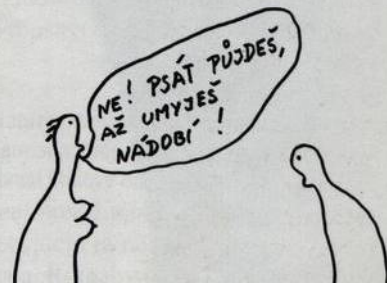 NE! PSÁT PŮJDEŠ,
AŽ UMYJEŠ
NÁDOBÍ!